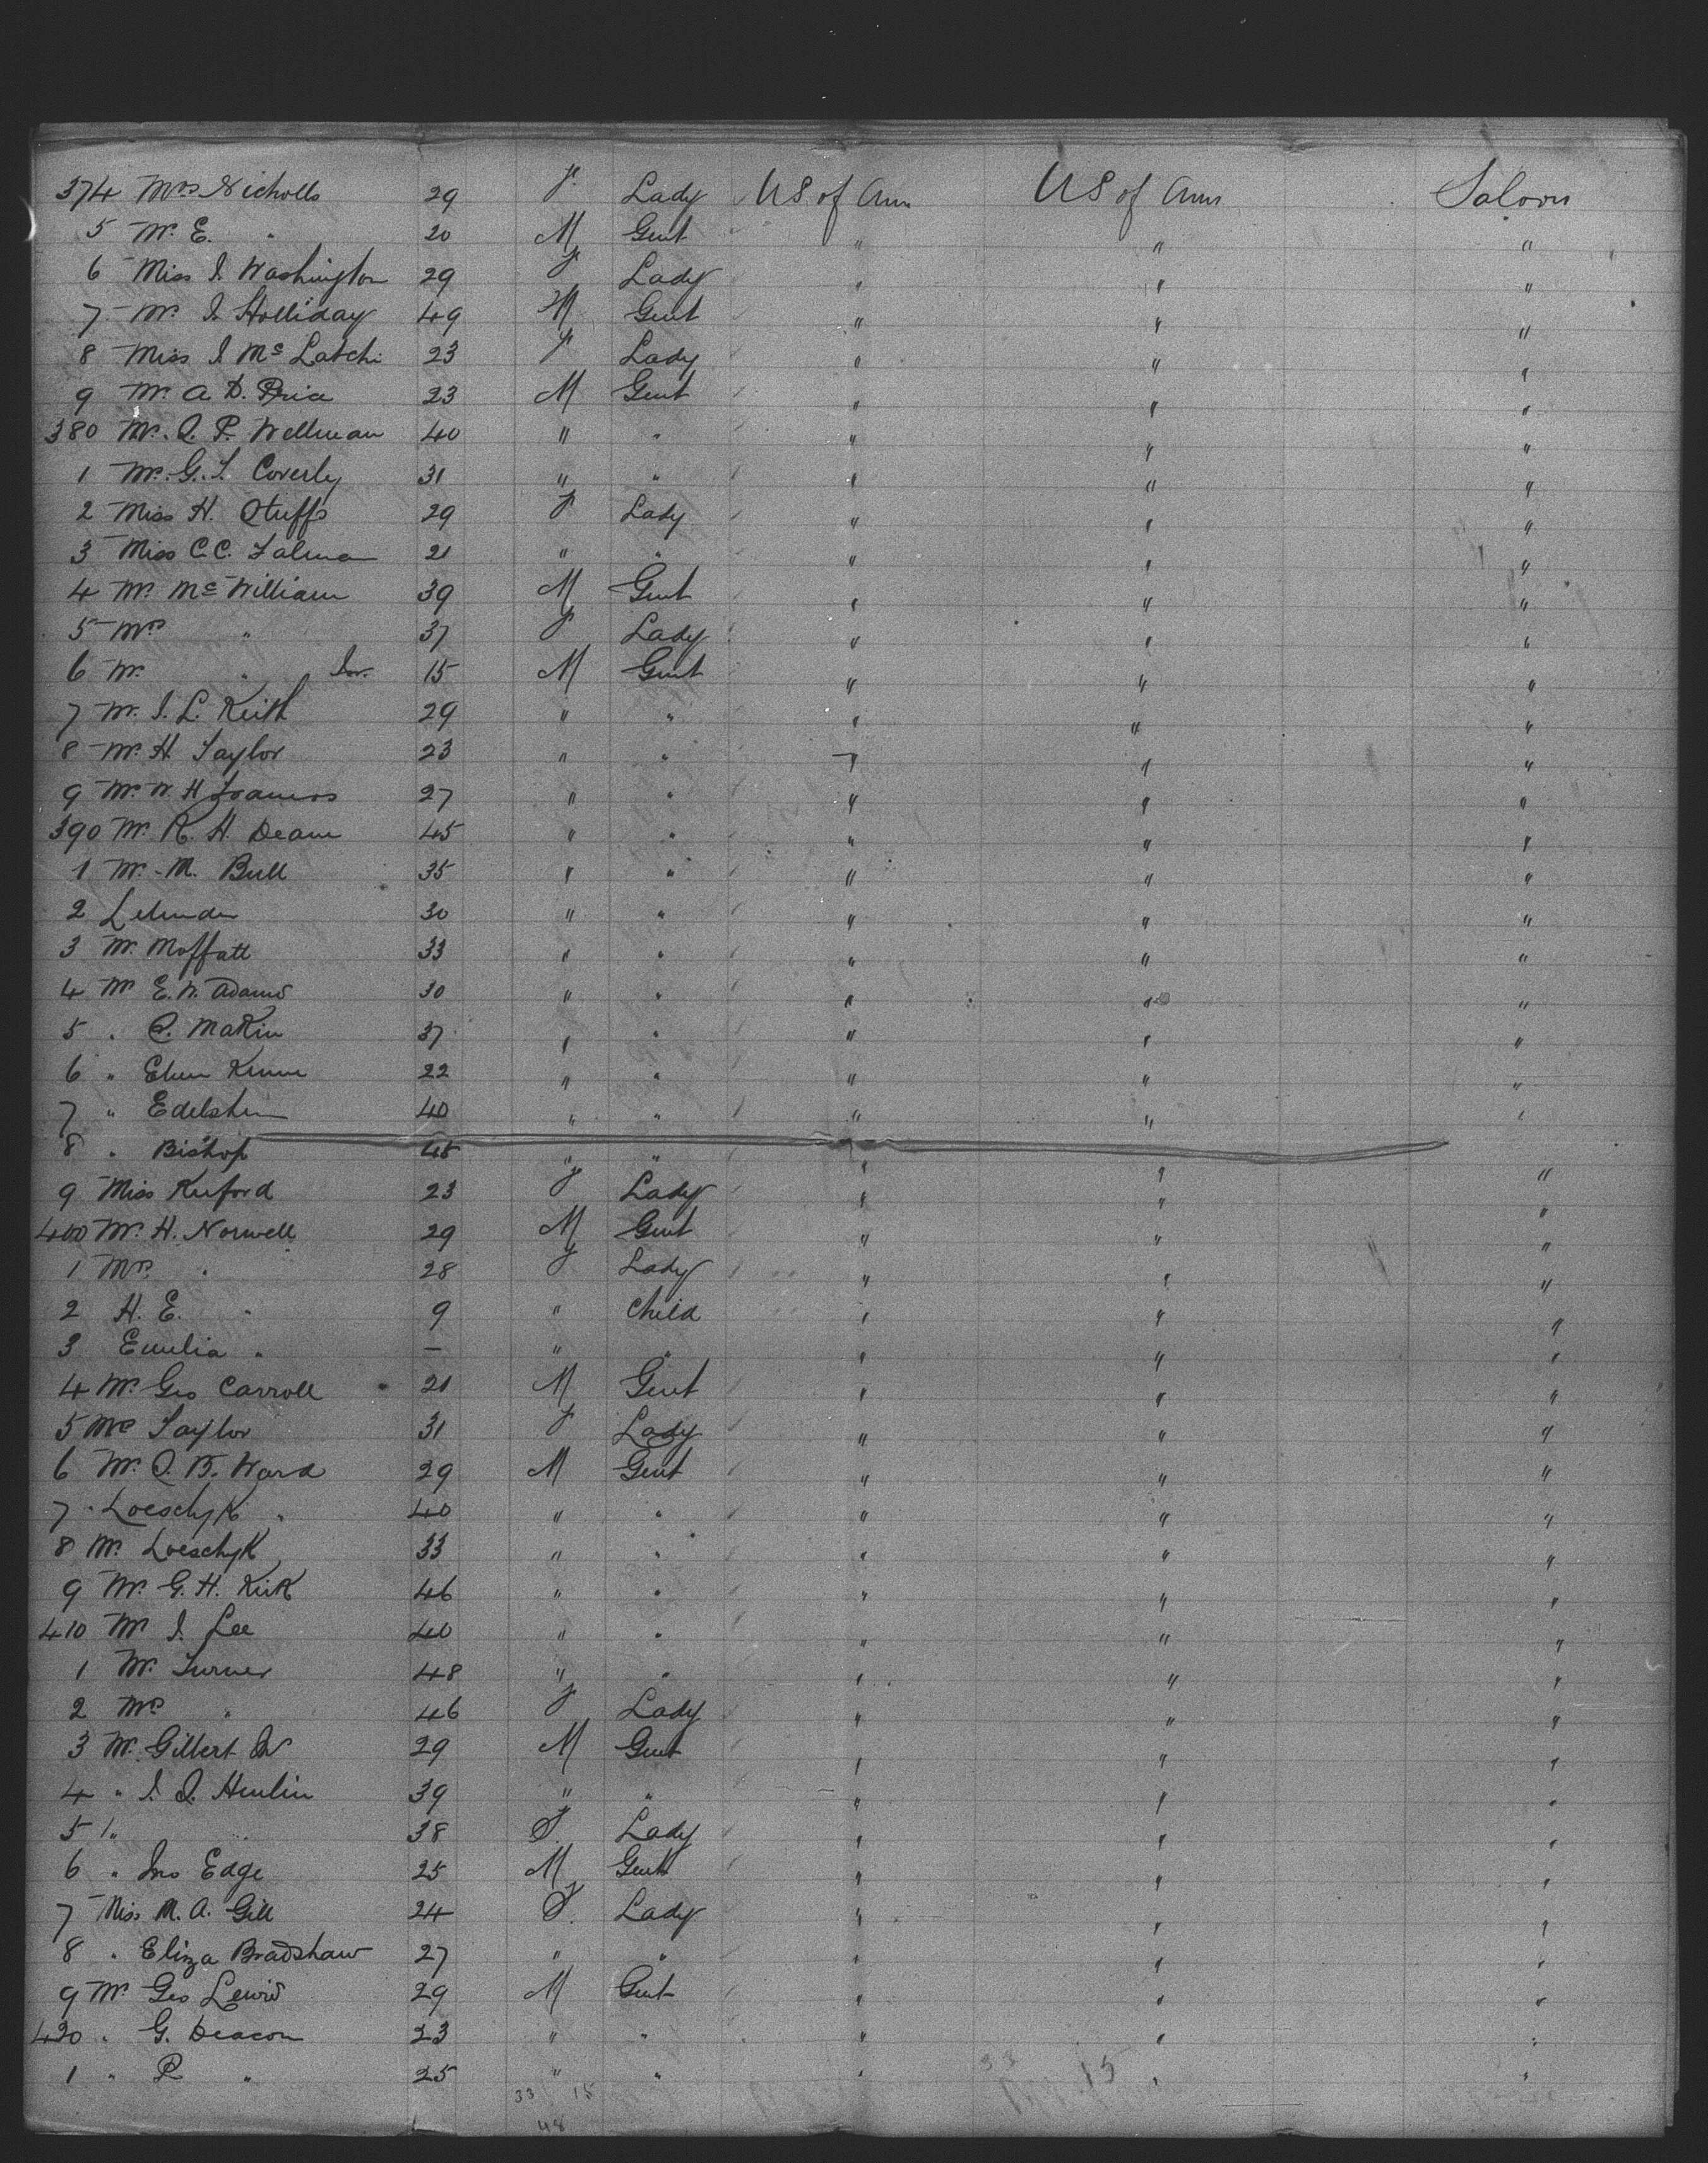 374 Mrs Nicholls 29 F. Lady US of Am US of Am Saloon
5 Mr. E. " 20 M Gent " " "
6 Miss J. Washington 29 F Lady " " "
7 Mr. J. Holliday 49 M Gent " " "
8 Miss J. Mc Latchi 23 F Lady " " "
9 Mr. A. D. Price 23 M Gent " " "
380 Mr. O. P. Wellman 40 " " " " "
1 Mr. G. T. Coverly 31 " " " " "
2 Miss H. 29 F Lady " " "
3 Miss C. C. 21 " " " " "
4 Mr. Mc William 39 M Gent " " "
5 Mrs " 37 F Lady " " "
6 Mr. " Jnr. 15 M Gent " " "
7 Mr. J. L. Keith 29 " " " " "
8 Mr. H Taylor 23 " " " " "
9 Mr. W. H 27 " " " " "
390 Mr. R. H. Deam 45 " " " " "
1 Mr. M. Bull 35 " " " " "
2 30 " " " " "
3 Mr. Moffatt 33 " " " " "
4 Mr E. W. Adams 30 " " " " "
5 " C. Makin 37 " " " " "
6 " 22 " " " " "
7 " Edelshem 40 " " " " "
8 " Bishop 45 " " " " "
9 Miss Kerford 23 F Lady " " "
400 Mr. H. Norwell 29 M Gent " " "
1 Mrs. " 28 F Lady " " "
2 H. E. " 9 " Child " " "
3 Emelia " — " " " " "
4 Mr. Geo Carroll 21 M Gent " " "
5 Mrs Taylor 31 F Lady " " "
6 Mr. O. B. Ward 29 M Gent " " "
7 " Loeschyk " 40 " " " " "
8 Mr. Loeschyk 33 " " " " "
9 Mr. G. H. Kirk 46 " " " " "
410 Mr J. Lee 40 " " " " "
1 Mr. Turner 48 " " " " "
2 Mrs " 46 F Lady " " "
3 Mr. Gilbert Jr 29 M Gent " " "
4 " J. O. 39 " " " " "
5 " " 38 F. Lady " " "
6 " Jno Edge 25 M Gent " " "
7 Miss M. A. Gill 24 F. Lady " " "
8 " Eliza Bradshaw 27 " " " " "
9 Mr Geo Lewis 29 M Gent " " "
420 " G. Deacon 23 " " " " "
1 " P " 25 " " " " "
33 15 33 15
48